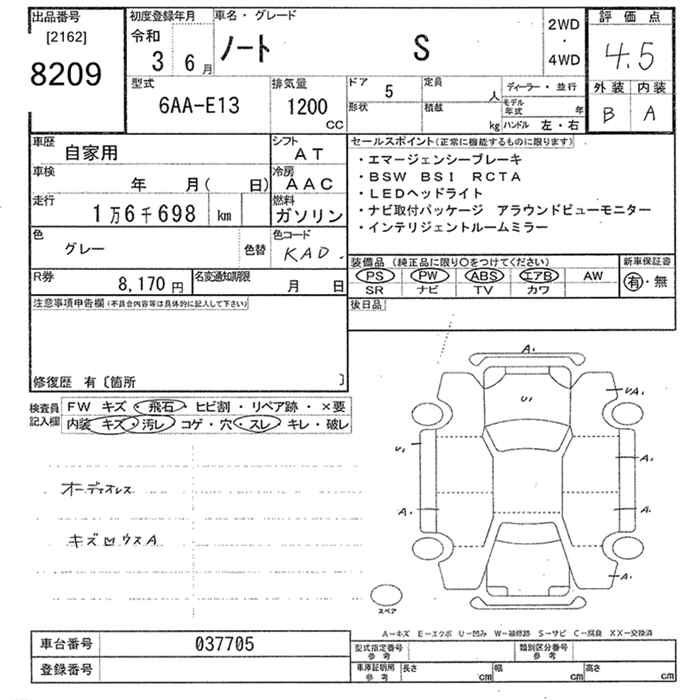 出品番号 初度登録年月 車名・グレード 2WD ・ 4WD 評価点
[2162] 令和
8209 3年 6月 ノート S 4.5
外装 内装
B A
型式 排気量 ドア 定員 ディーラー・並行
6AA-E13 1200 CC 5 人 モデル年式 年
形状 積載 kg ハンドル 左・右
車歴 自家用 シフト AT
車検 年 月( 日) 冷房 AAC
走行 1万6千698 km 燃料 ガソリン
色 グレー 色替 色コード KAD.
R券 8,170円 名変通知期限 月 日
セールスポイント(正常に機能するものに限ります)
・エマージェンシーブレーキ
・BSW BSI RCTA
・LEDヘッドライト
・ナビ取付パッケージ アラウンドビューモニター
・インテリジェントルームミラー
装備品(純正品に限り○をつけてください) 新車保証書
PS PW ABS エアB AW 有・無
SR ナビ TV カワ
後日品
注意事項申告欄(不具合内容等は具体的に記入して下さい)
修復歴 有〔箇所 〕
検査員記入欄 FW キズ・飛石・ヒビ割・リペア跡・×要
内装 キズ・汚レ コゲ・穴・スレ・キレ・破レ
オーディオレス
キズ凹ウスA
A₁
U₁
UA₁
U₁
A₁
A₁
A₁
A₁
スペア
A―キズ E―エクボ U―凹み W―補修跡 S―サビ C―腐食 XX―交換済
車台番号 037705
登録番号
型式指定番号 参考 類別区分番号 参考
車庫証明用 参考 長さ cm 幅 cm 高さ cm